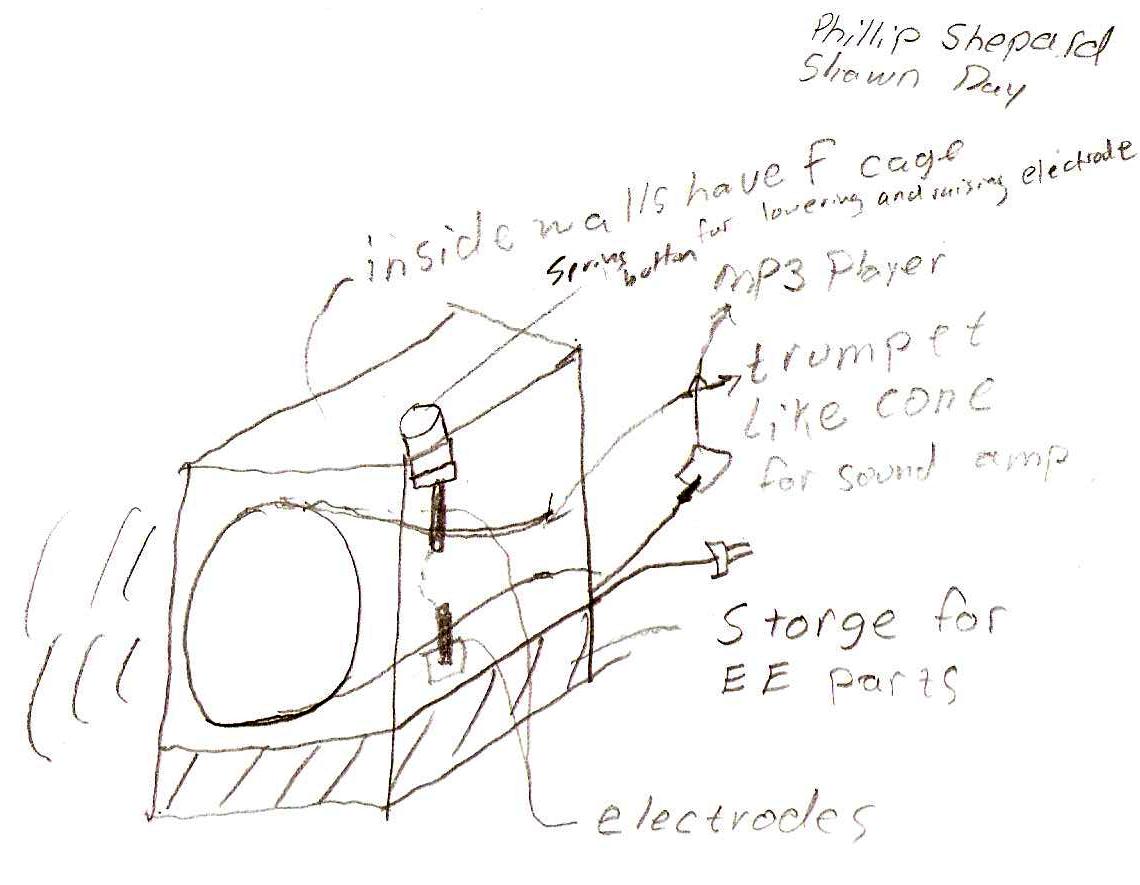 Phillip Shepard
Shawn Day
inside walls have f cage
Spring button for lowering and raising electrode
MP3 Player
trumpet
Like cone
for sound amp
Storge for
EE parts
electrodes